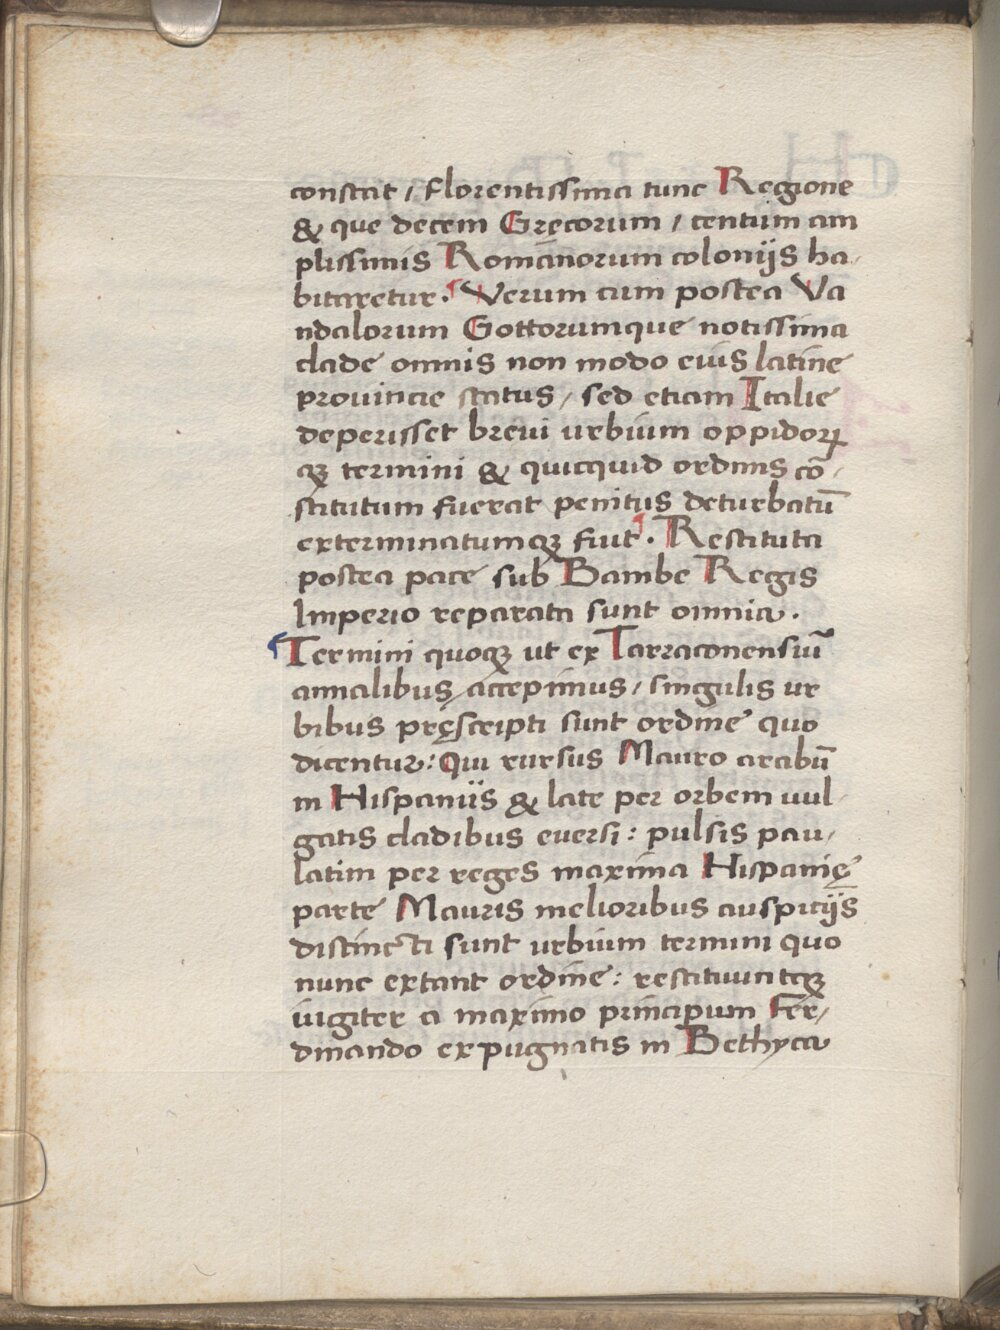 constat / florentissima tunc Regione
& que decem Gręcorum / centum am
plissimis Romanorum colonijs ha-
bitaretur. Verum cum postea Va
ndalorum Gottorumque notissima
clade omnis non modo eius latine
prouincie status / sed etiam Italie
deperisset breui urbium oppidorꝝ
qꝫ termini & quicquid ordinis cō-
stitutum fuerat penitus deturbatū
exterminatumqꝫ fiut. Restituta
postea pace sub Bambe Regis
Imperio reparata sunt omnia.
Termini quoqꝫ ut ex Tarraconensiū
annalibus accepimus / singulis ur
bibus pręscripti sunt ordine quo
dicentur: Qui rursus Mauro arabū
in Hispaniis & late per orbem uul-
gatis cladibus euersi: pulsis pau-
latim per reges maxima Hispanię
parte Mauris melioribus auspicijs
distincti sunt urbium termini quo
nunc extant ordine: restituunteqꝫ
iugiter a maximo principum Fer/
dinando expugnatis in Bethyca